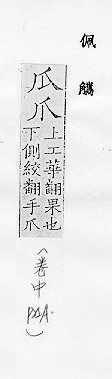 佩觿
瓜爪
上工華翻果也
下側絞翻手爪
(卷中
P2A.)